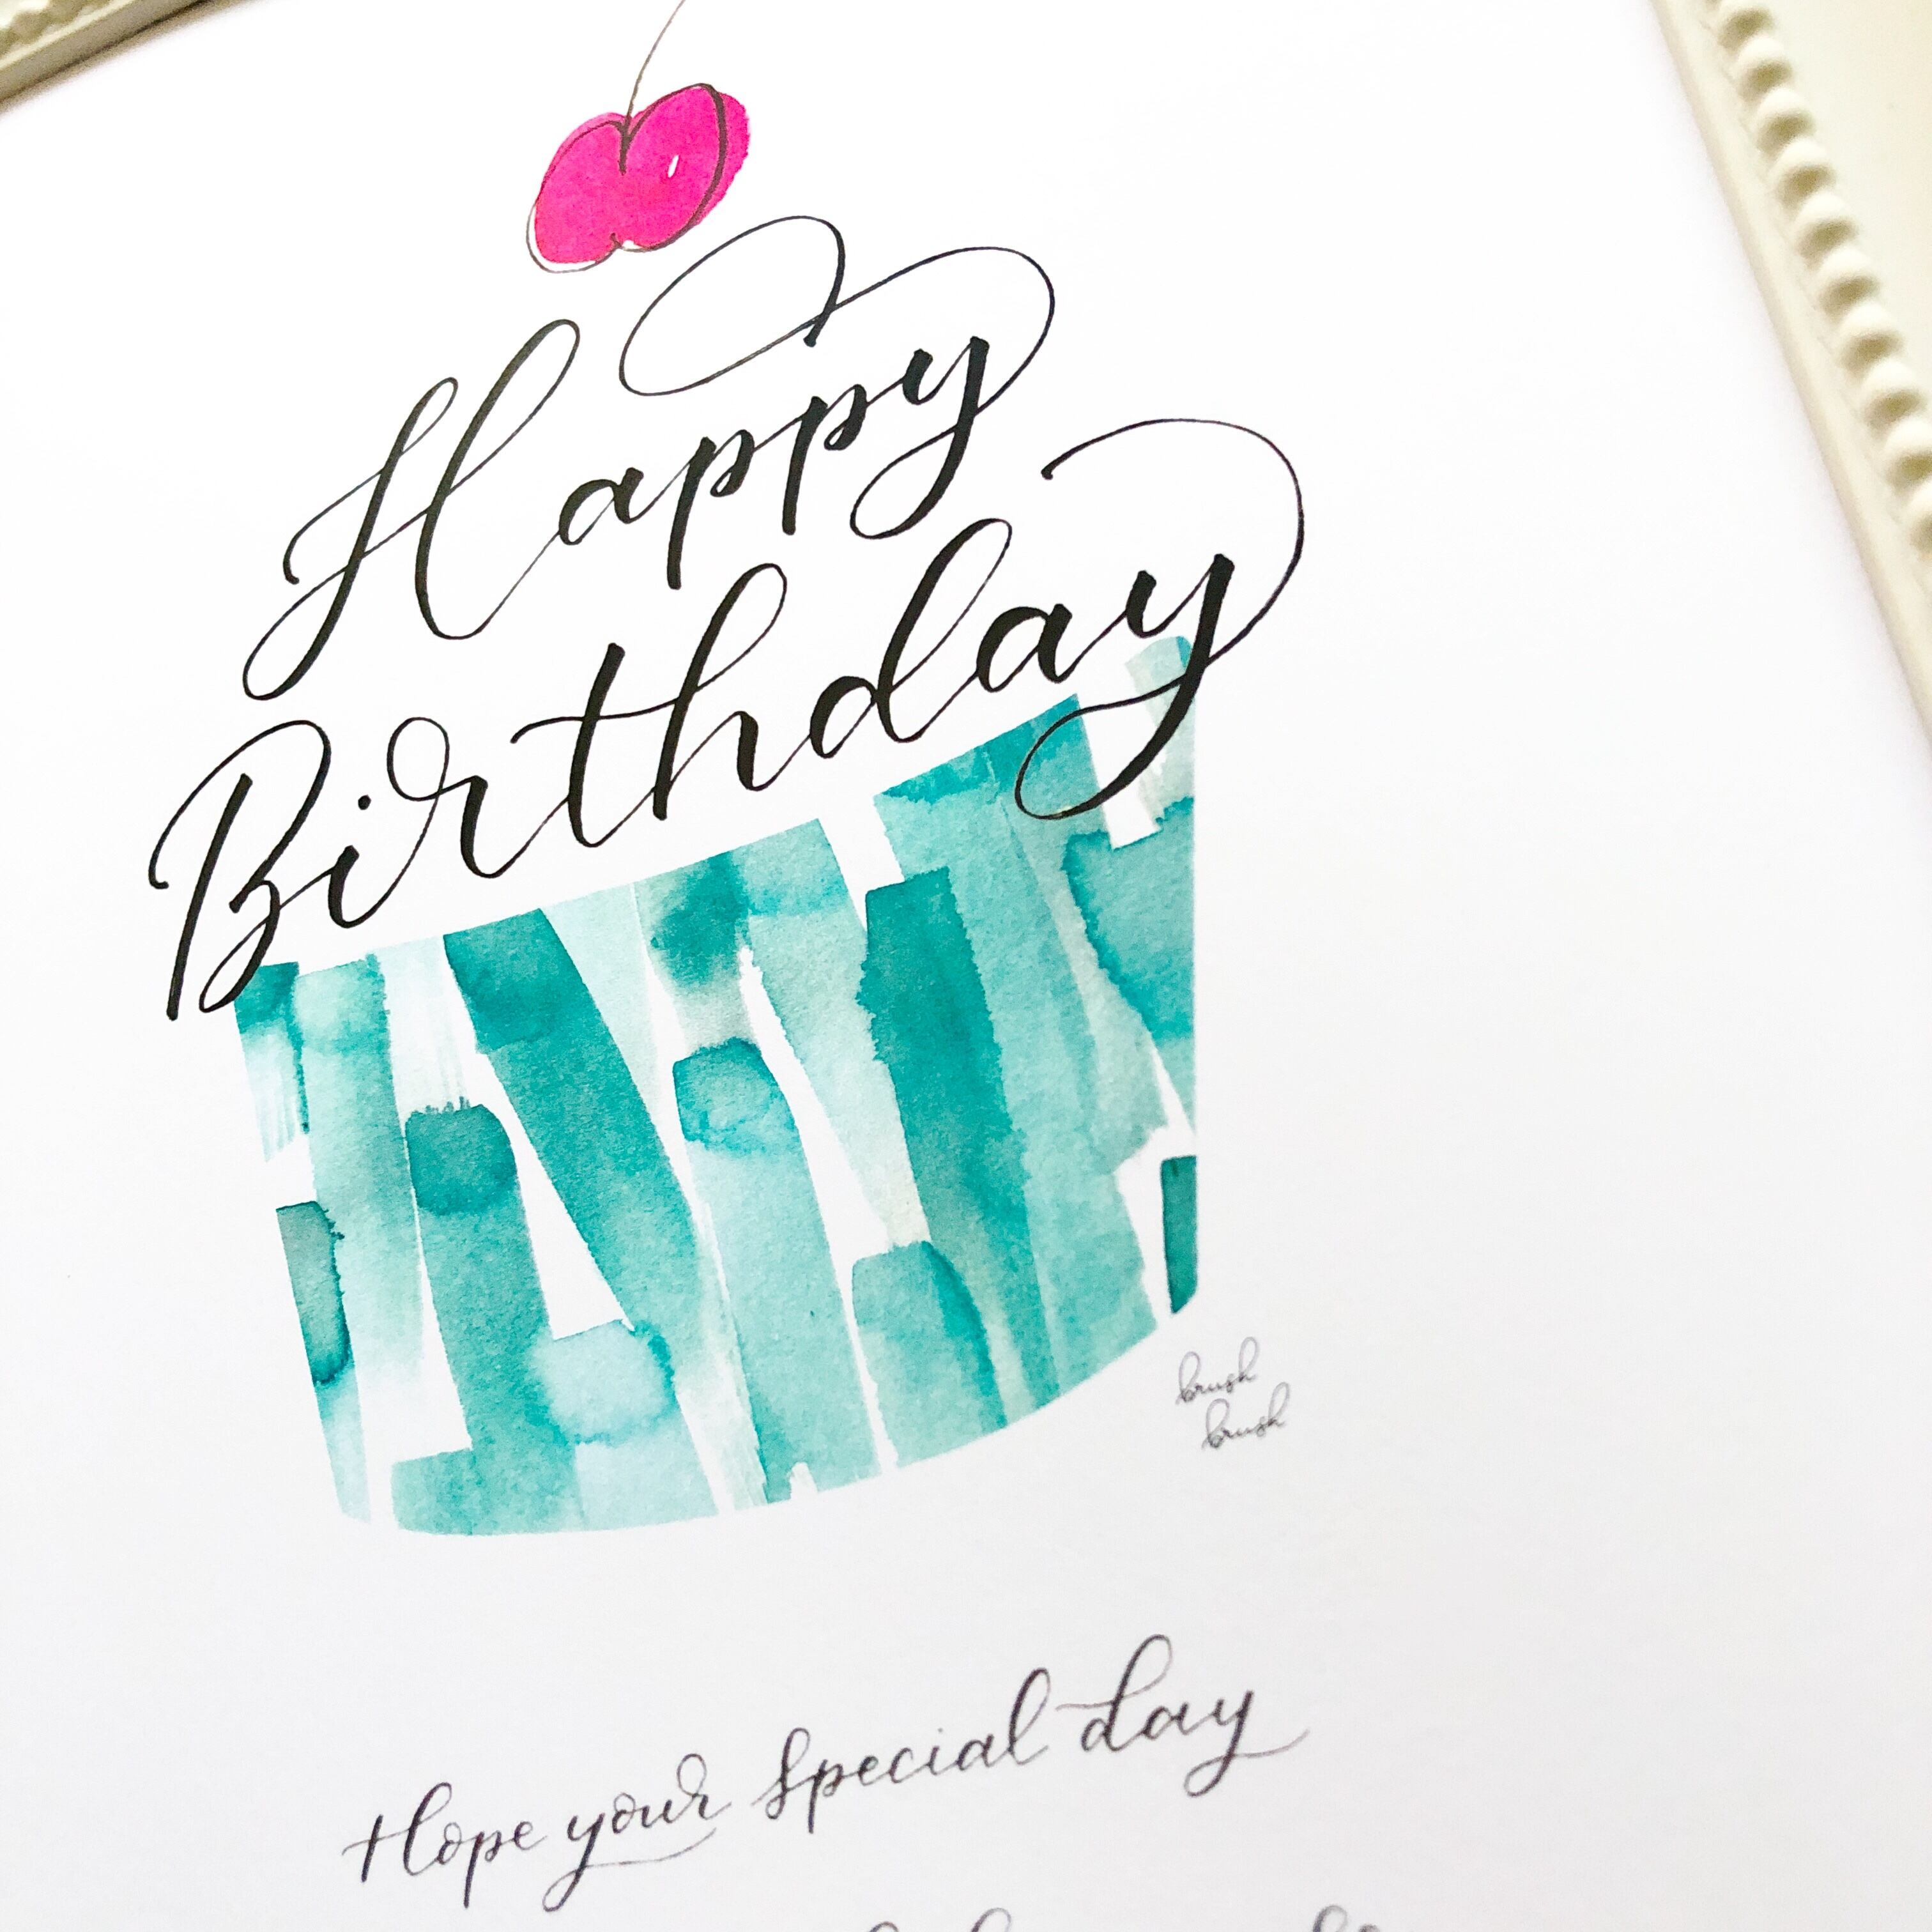 Happy
Birthday
brush
brush
Hope your special day